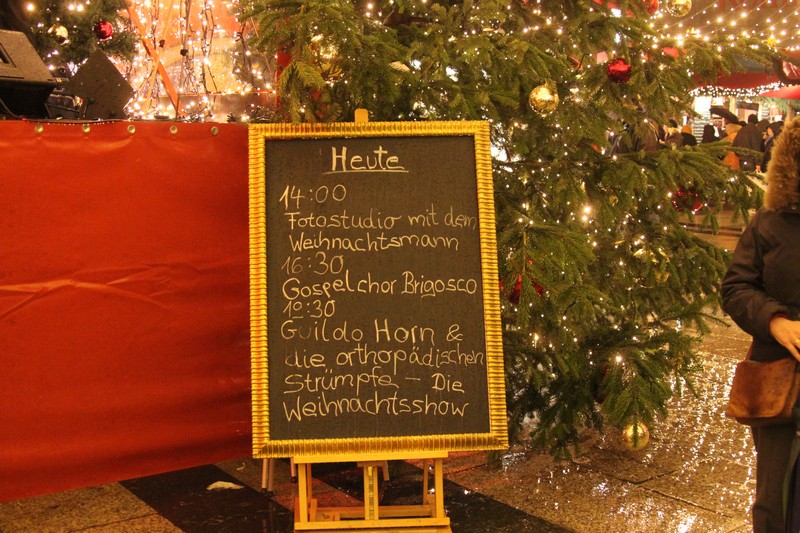 Heute
14:00
Fotostudio mit dem
Weihnachtsmann
16:30
Gospelchor Brigosco
Guildo Horn &
die orthopädischen
Strümpfe – Die
Weihnachtsshow